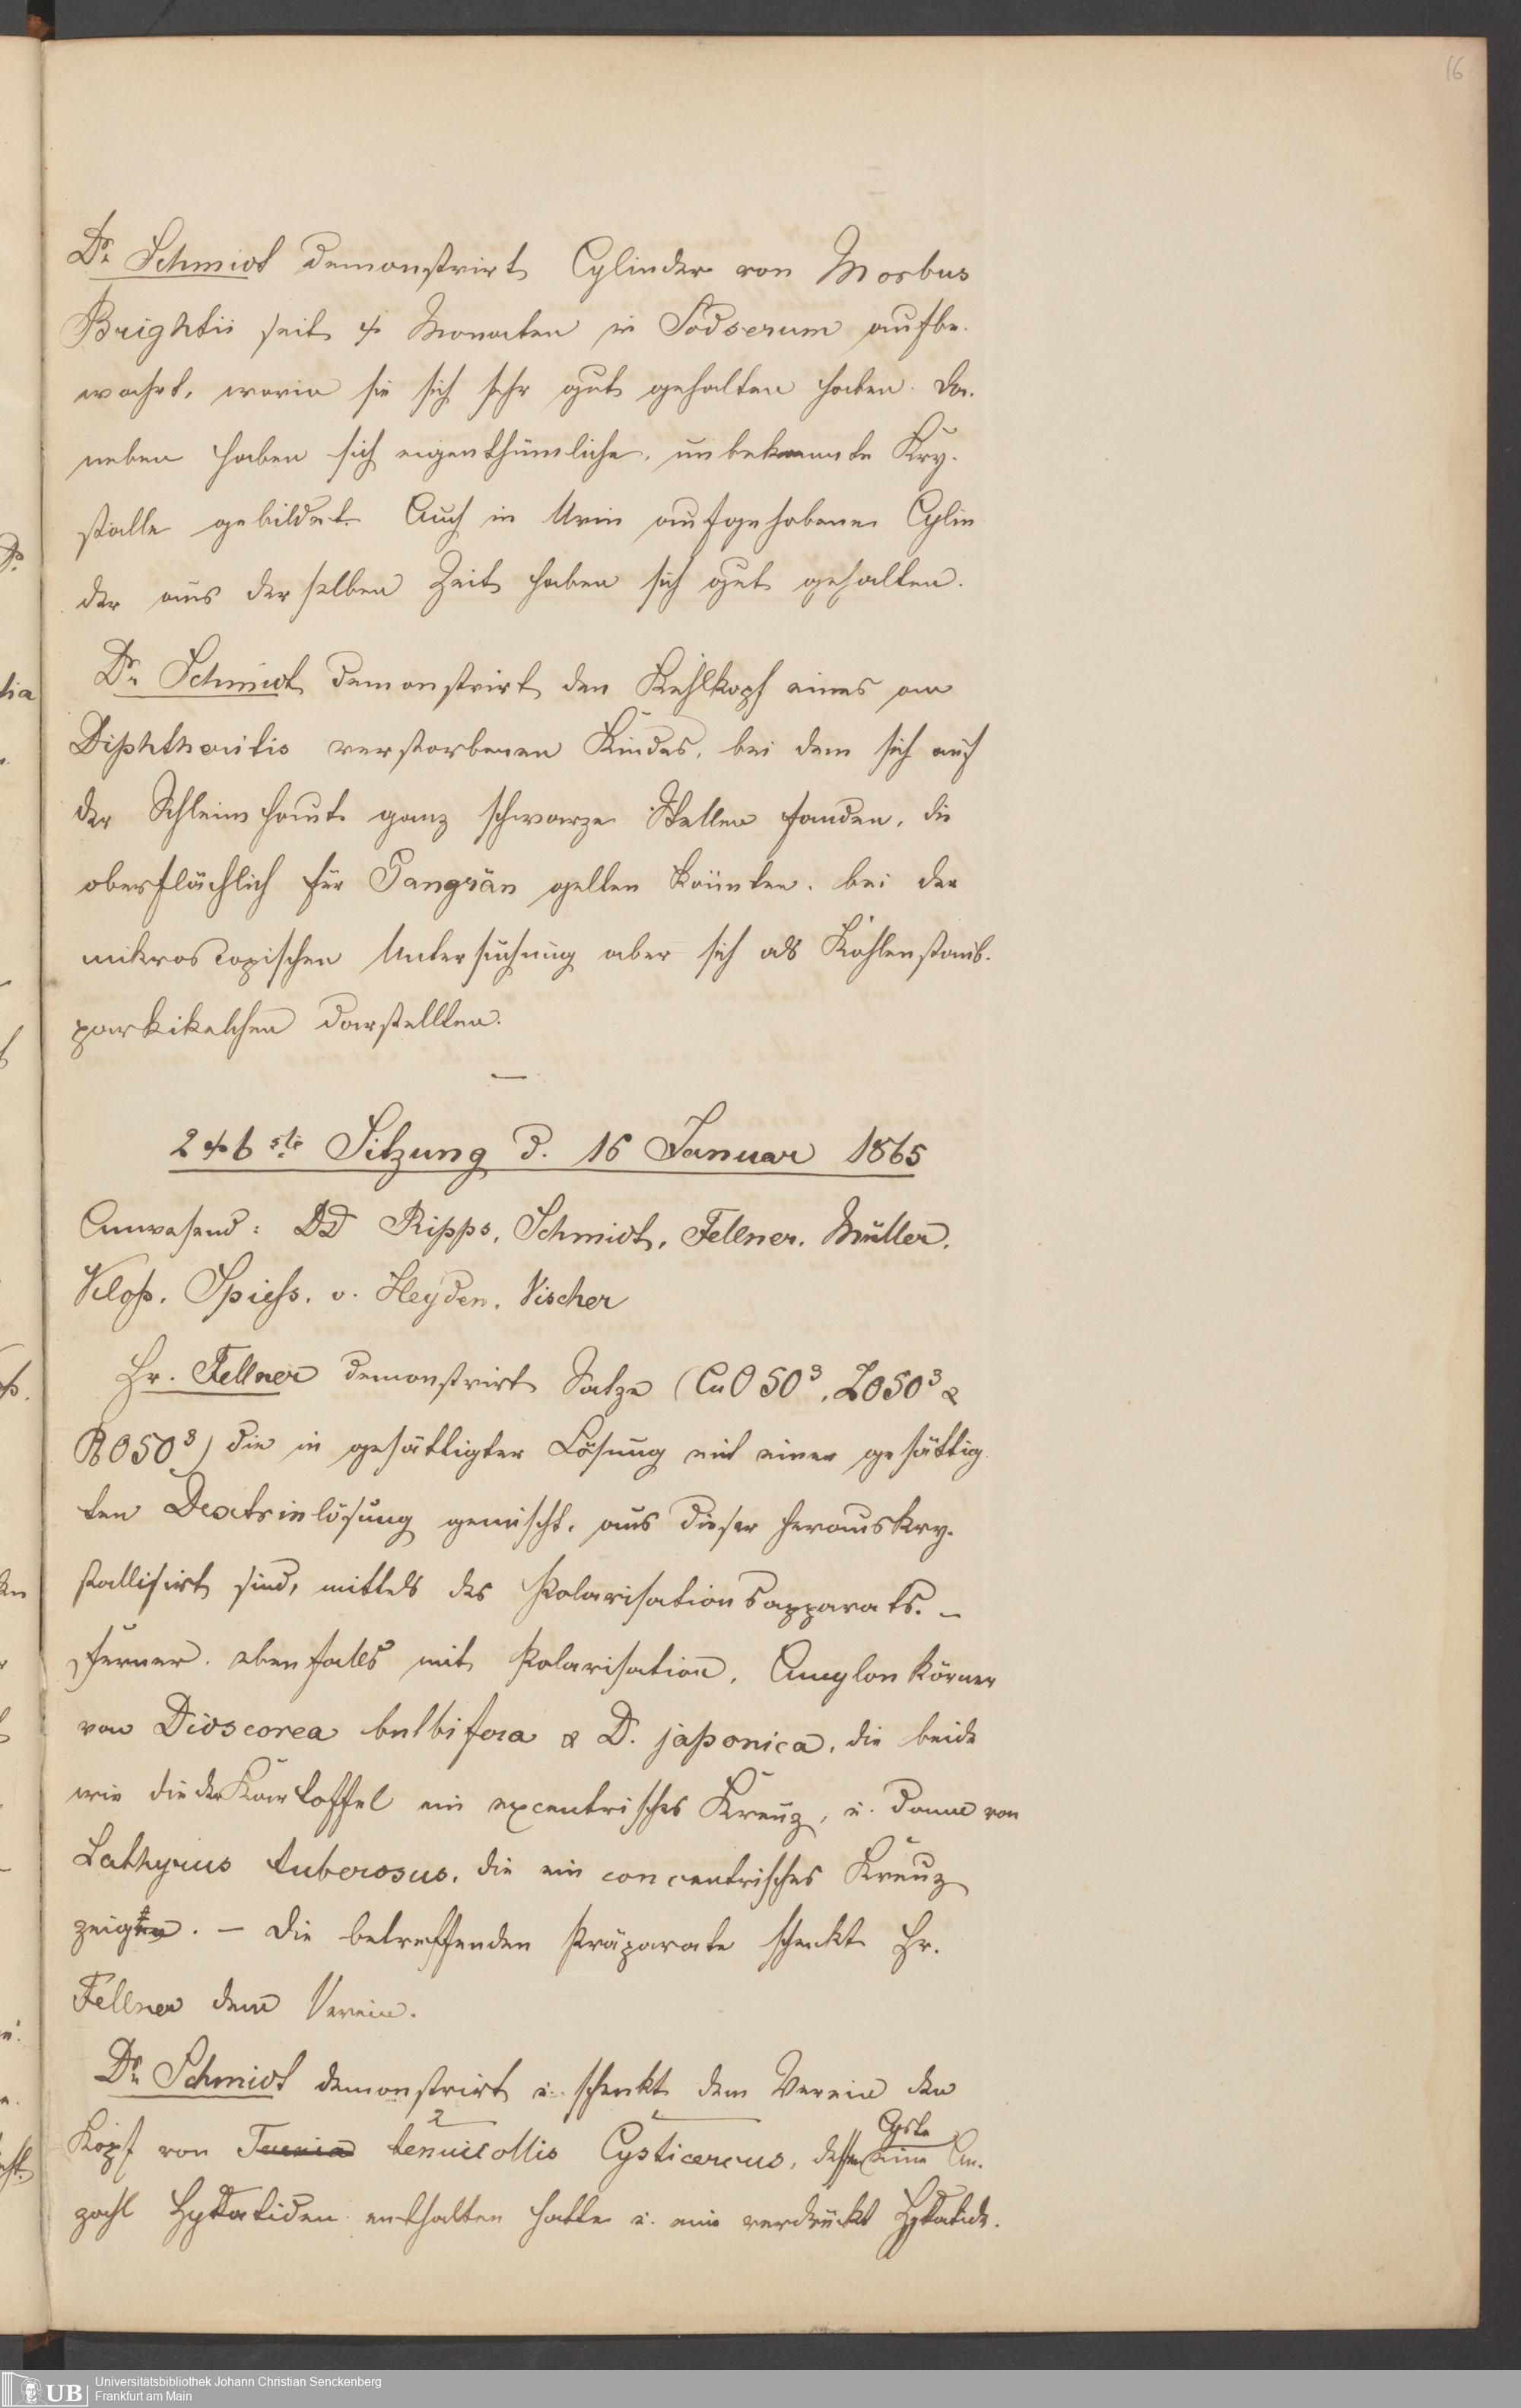 16
Dr. Schmidt demonstrirt Cylinder von Morbus
Brightii seit 4 Monaten in Jodserum aufbe-
wahrt, worin sie sich sehr gut gehalten haben. Da-
neben haben sich eigenthümliche, unbekannte Kry-
stalle gebildet. Auch in Urin aufgehobene Cylin
der aus derselben Zeit haben sich gut gehalten.
Dr. Schmidt demonstrirt den Kehlkopf eines an
Diphtheritis verstorbenen Kindes, bei dem sich auf
der Schleimhaut ganz schwarze Stellen fanden, die
oberflächlich für Gangrän gelten könnten, bei der
mikroscopischen Untersuchung aber sich als Kohlenstaub-
partikelchen darstellten.
246ste Sitzung d. 16 Januar 1865
Anwesend: DD Ripps, Schmidt, Fellner, Müller,
Kloß, Spieß, v. Heyden, Vischer
Hr. Fellner demonstrirt Salze (CuO SO3, ZOSO3 &
ROSO3) die in gesättigter Lösung mit einer gesättig
ten Dextrinlösung gemischt, aus dieser herauskry-
stallisirt sind, mittels des Polarisationsapparats. –
Ferner, ebenfalls mit Polarisation, Amylonkörner
von Dioscorea bulbifora & D. japonica, die beide
wie die der Kartoffel ein excentrisches Kreuz, u. dann von
Lathyrus tuberosus, die ein concentrisches Kreuz
zeigten. – Die betreffenden Präparate schenkt Hr.
Fellner dem Verein.
Dr. Schmidt demonstrirt u. schenkt dem Verein den
Kopf von Taenia tenuicollis Cysticercus, dessen Cyste eine An-
zahl Hydatiden enthalten hatte u. eine verdrückt Hydatide.
UB Universitätsbibliothek Johann Christian Senckenberg
Frankfurt am Main